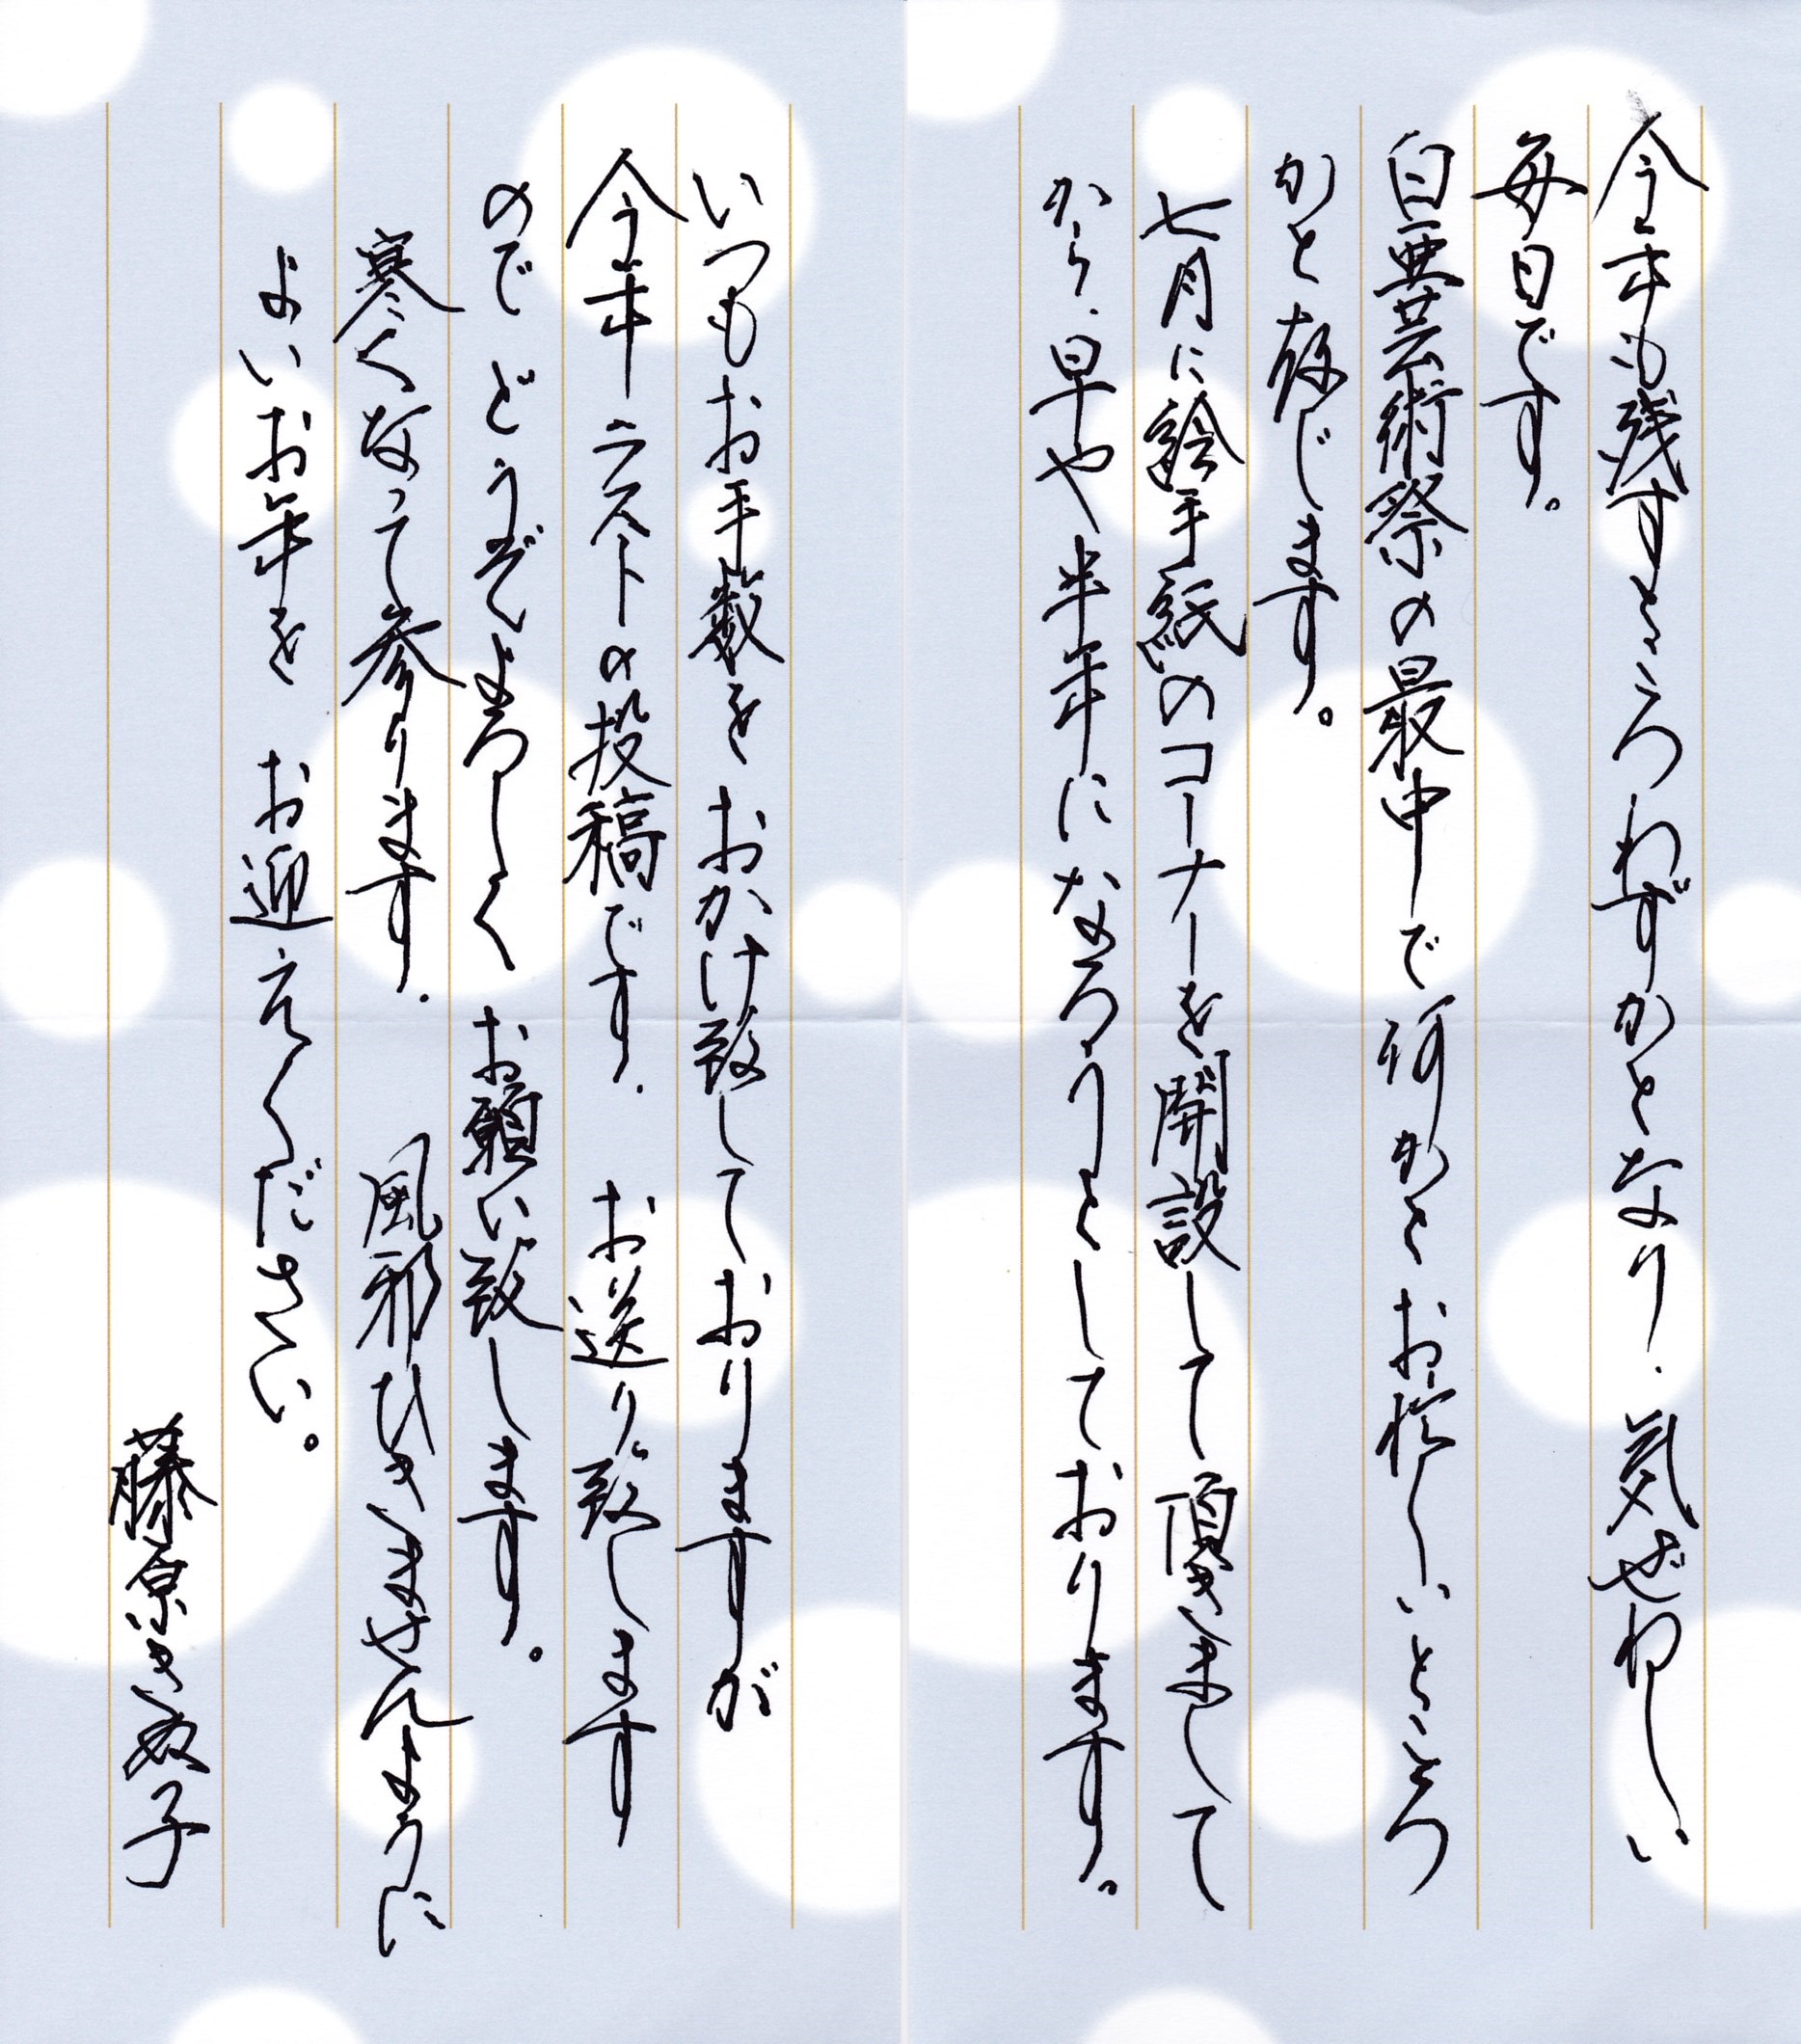 今年も残すところわずかとなり、気ぜわしい
毎日です。
白亜芸術祭の最中で何かとお忙しいところ
かと存じます。
七月に絵手紙のコーナーを開設して頂きまして
から、早や半年になろうとしております。
いつもお手数をおかけ致しておりますが
今年ラストの投稿です。お送り致します
のでどうぞよろしくお願い致します。
寒くなって参ります。風邪ひきませんように
よいお年をお迎えください。
藤原きぬ子